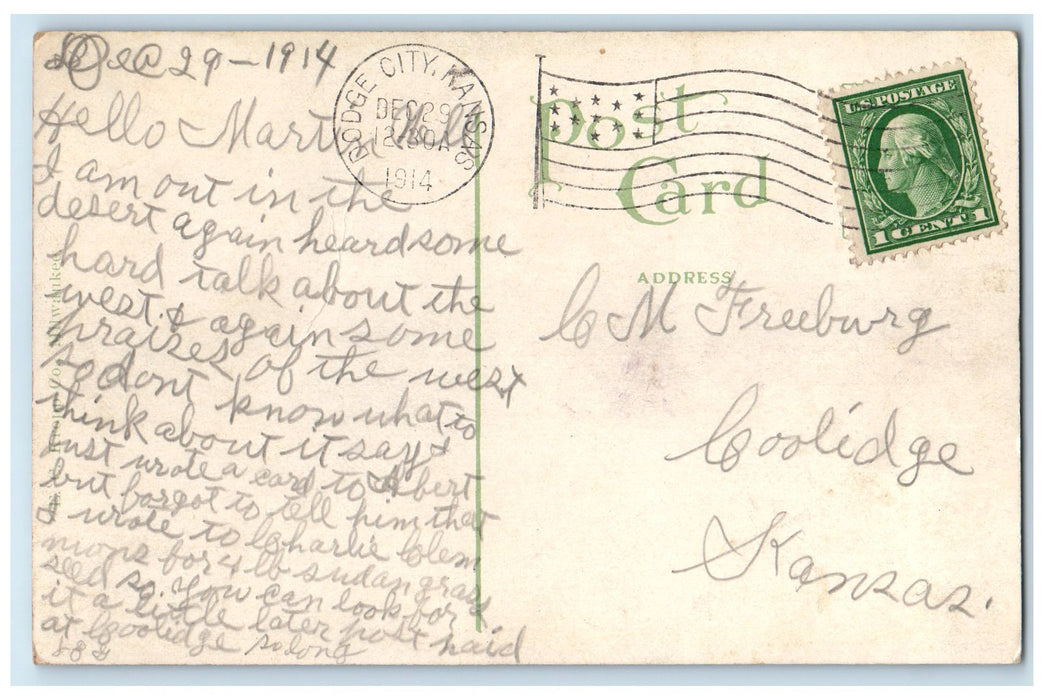 Dec 29-1914
Hello Mart
I am out in the
desert again heard some
hard talk about the
west. & again some
praises of the west
so dont know what to
think about it say &
Just wrote a card to Albert
but forgot to tell him that
I wrote to Charlie Clem
mons for 4 lb sudan grass
seed so. You can look for
it a little later post paid
at Coolidge so long
DODGE CITY, KANSAS
DEC 29
12:30A
1914
Post
Card
U.S. POSTAGE
1 CENT 1
ADDRESS
C M Freeburg
Coolidge
Kansas.
Co., Milwaukee